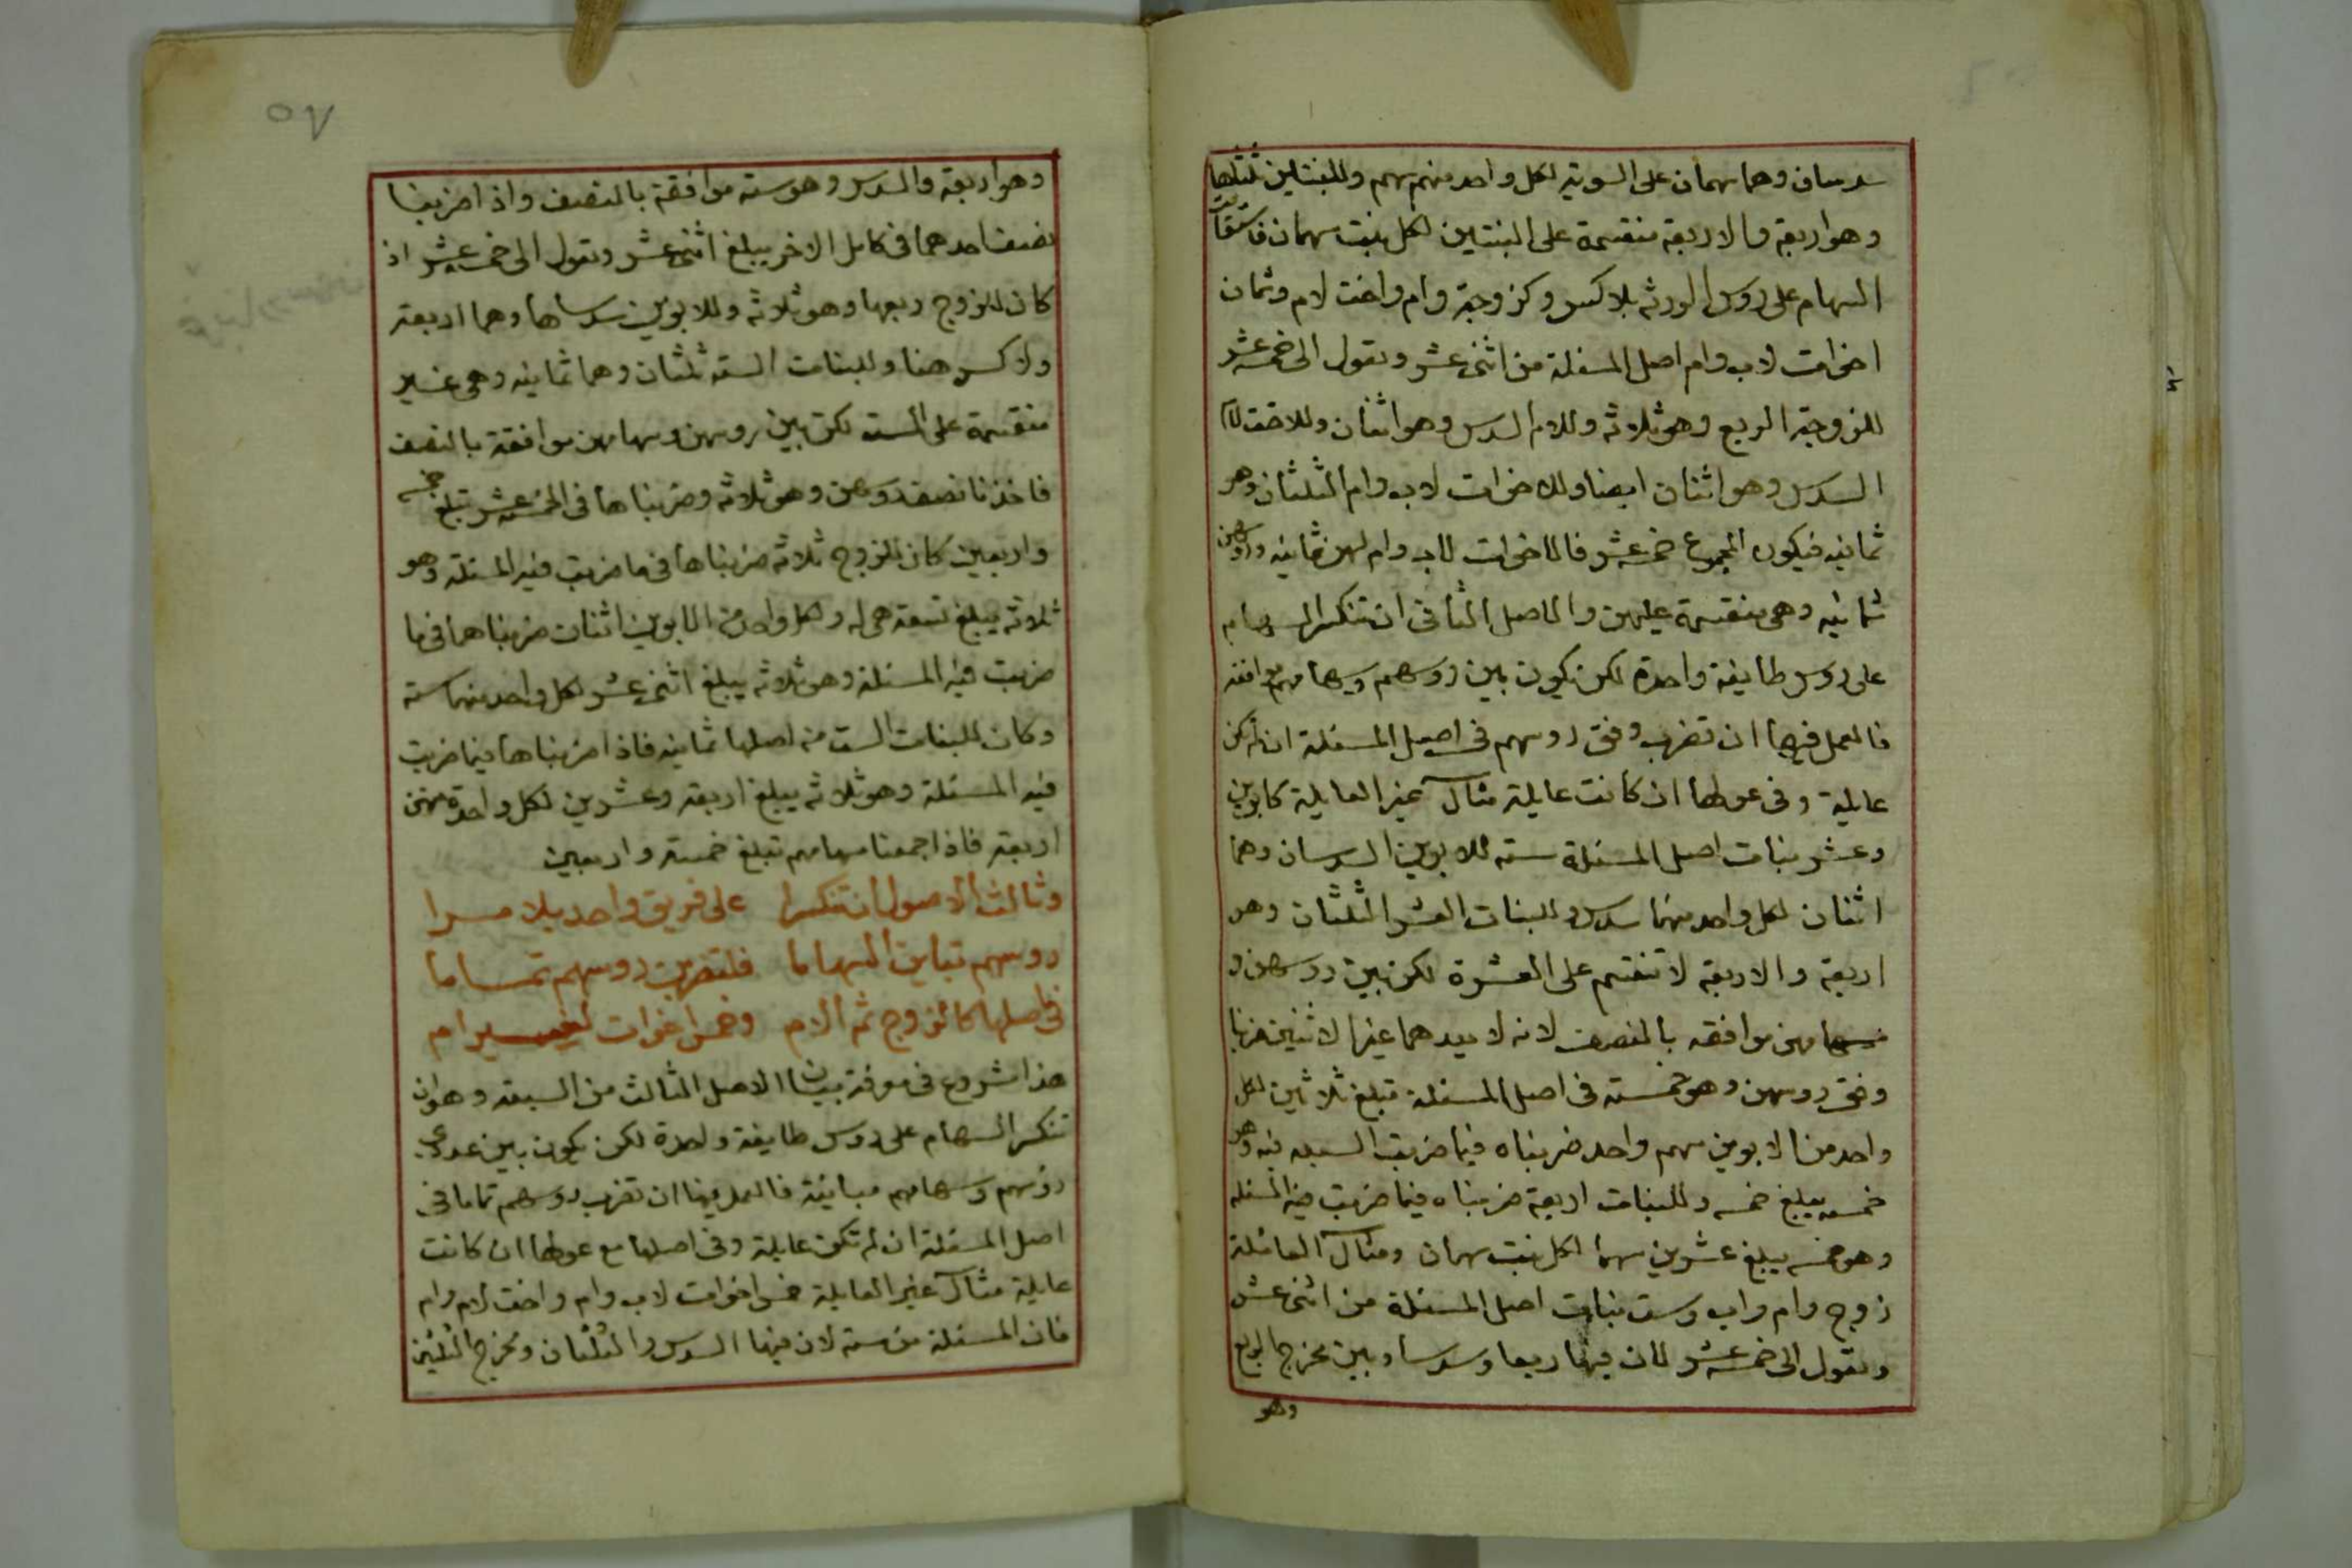 سدسان وهما سهمان على السوية لكل واحد منهم سهم وللبنتين ثلثاها
وهو اربعة والاربعة منقسمة على البنتين لكل بنت سهمان فاستقامت
السهام على روس الورثة بلا كسر وكزوجة وام واخت لام وثمان
اخوات لاب وام اصل المسئلة من اثنى عشر وتعول الى خمسة عشر
للزوجة الربع وهو ثلاثة وللام السدس وهو اثنان وللاخت لام
السدس وهو اثنان ايضا وللاخوات لاب وام الثلثان وهو
ثمانيه فيكون المجموع خمسة عشر فالاخوات لاب وام لهن ثمانيه وروسهن
ثمانيه وهى منقسمة عليهن والاصل الثانى ان تنكسر السهام
على روس طايفة واحدة لكن يكون بين روسهم وسهامهم موافقة
فالعمل فيها ان تضرب وفق روسهم فى اصل المسئلة ان لم تكن
عايلة وفى عولها ان كانت عايلة مثال غير العايلة كابوين
وعشر بنات اصل المسئلة سته للابوين السدسان وهما
اثنان لكل واحد منهما سدس وللبنات العشر الثلثان وهو
اربعة والاربعة لا تنقسم على العشرة لكن بين روسهن و
سهامهن موافقه بالنصف لانه لا يعدهما غير الاثنين ضربنا
وفق روسهن وهو خمسة فى اصل المسئلة تبلغ ثلاثين لكل
واحد من الابوين سهم واحد ضربناه فيما ضربت المسئله فيه وهو
خمسه يبلغ خمسه وللبنات اربعة ضربناه فيما ضربت فيه المسئله
وهو خمسه يبلغ عشرين سهما لكل بنت سهمان ومثال العائلة
زوج وام واب وست بنات اصل المسئلة من اثنى عشر
وتعول الى خمسة عشر لان فيها ربعا وسدسا وبين مخرج الربع
وهو
٥٧
وهو اربعة والسدس وهو ستة موافقة بالنصف واذا ضربنا
نصف احدهما فى كامل الاخر يبلغ اثنى عشر وتعول الى خمسة عشر اذ
كان للزوج ربعها وهو ثلاثة وللابوين سدساها وهما اربعة
ولا كسر هنا وللبنات الستة ثلثان وهما ثمانيه وهى غير
منقسمة على الستة لكن بين روسهن وسهامهن موافقة بالنصف
فاخذنا نصف روسهن وهو ثلاثة وضربناها فى الخمسة عشر تبلغ خمسة
واربعين كان للزوج ثلاثة ضربناها فى ما ضربت فيه المسئلة وهو
ثلاثة يبلغ تسعة هى له ولكل واحد من الابوين اثنان ضربناهما فى ما
ضربت فيه المسئلة وهو ثلاثة يبلغ اثنى عشر لكل واحد منهما ستة
وكان للبنات الست من اصلها ثمانيه فاذا ضربناها فيما ضربت
فيه المسئلة وهو ثلاثة يبلغ اربعة وعشرين لكل واحدة منهن
اربعة فاذا جمعنا سهامهم تبلغ خمسة واربعين
وثالث الاصول ان تنكسرا على فريق واحد بلا مرا
روسهم تباين السهاما فلتضربن روسهم تماما
فى اصلها كالزوج ثم الام وخمس اخوات لغير ام
هذا شروع فى معرفة بيان الاصل الثالث من السبعة وهو ان
تنكسر السهام على روس طايفة واحدة لكن يكون بين عددى
روسهم وسهامهم مباينة فالعمل فيها ان تضرب روسهم تماما فى
اصل المسئلة ان لم تكن عايلة وفى اصلها مع عولها ان كانت
عايلة مثال غير العايلة خمس اخوات لاب وام واخت لام وام
فان المسئلة من ستة لان فيها السدس والثلثان ومخرج الثلثين